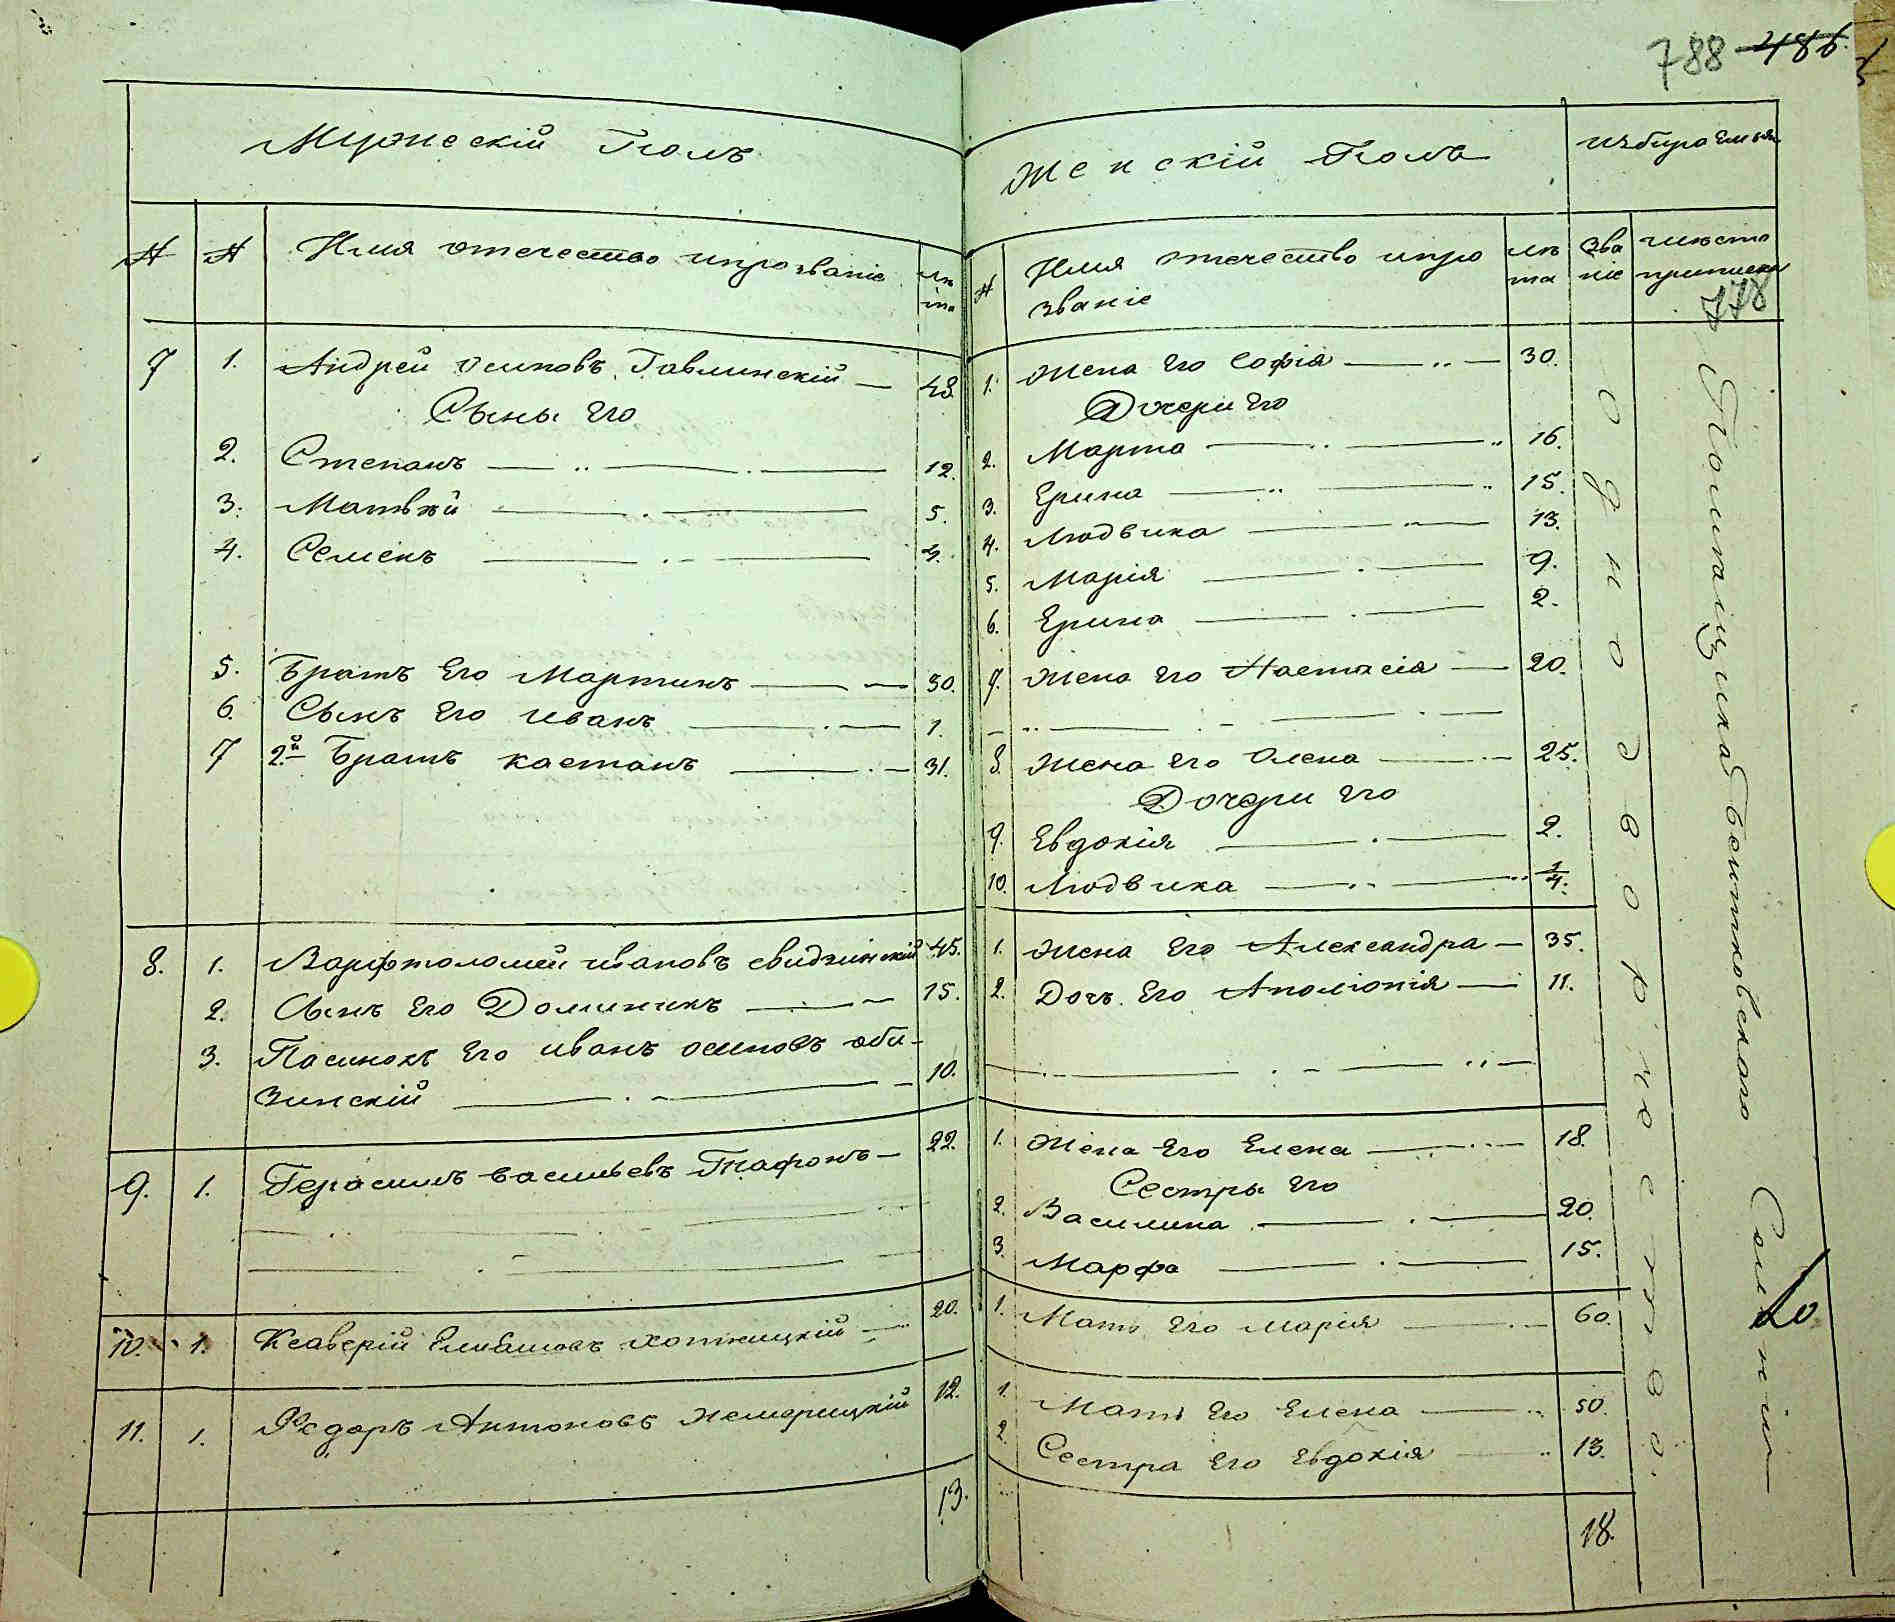 788 486.
Мужескій Полъ
№ № Имя отечество ипрозваніе лѣ
та
7 1. Андрей Осиповъ Гавлинскій — 48.
Сыны Его
2. Степанъ — " — . — 12.
3. Матвѣй — . — 5.
4. Семенъ — . — 4.
5. Братъ Его Мартинъ — 30.
6. Сынъ Его иванъ — . — 1.
7 2й Братъ каетанъ — . — 31.
8. 1. Варфтоломей ивановъ свидзинскій 45.
2. Сынъ Его Доминикъ — 15.
3. Пасинокъ Его иванъ осиповъ оби-
зинскій — . — 10.
9. 1. Герасимъ васильевъ — 22.
10. 1. Ксаверій хотницкій — 20.
11. 1. Ѳедоръ Антоновъ 12.
13.
Женскій Полъ
избира
№ Имя отечество ипро
званіе
лѣ
та
зва
ніе
мѣсто
приписки
778
1. Жена Его Софія — " — 30.
Дочери Его
2. Марта — 16.
3. Ерина — " — 15.
4. Людвика — 13.
5. Марія — . — 9.
6. Ерина — . — 2.
7. Жена Его Настасія — 20.
8. Жена Его Олена — 25.
Дочери Его
9. Евдокія — . — 2.
10. Людвика — 1/4.
1. Жена Его Александра — 35.
2. Дочъ Его Аполіонія — 11.
1. Жена Его Елена — 18.
Сестры Его
2. Василина — . — 20.
3. Марфа — . — 15.
1. Мать Его марія — 60.
1. Мать Его Елена — 50.
2. Сестра Его Евдокія — 13.
18.
однодворчество.
Помѣщика Бентковскаго